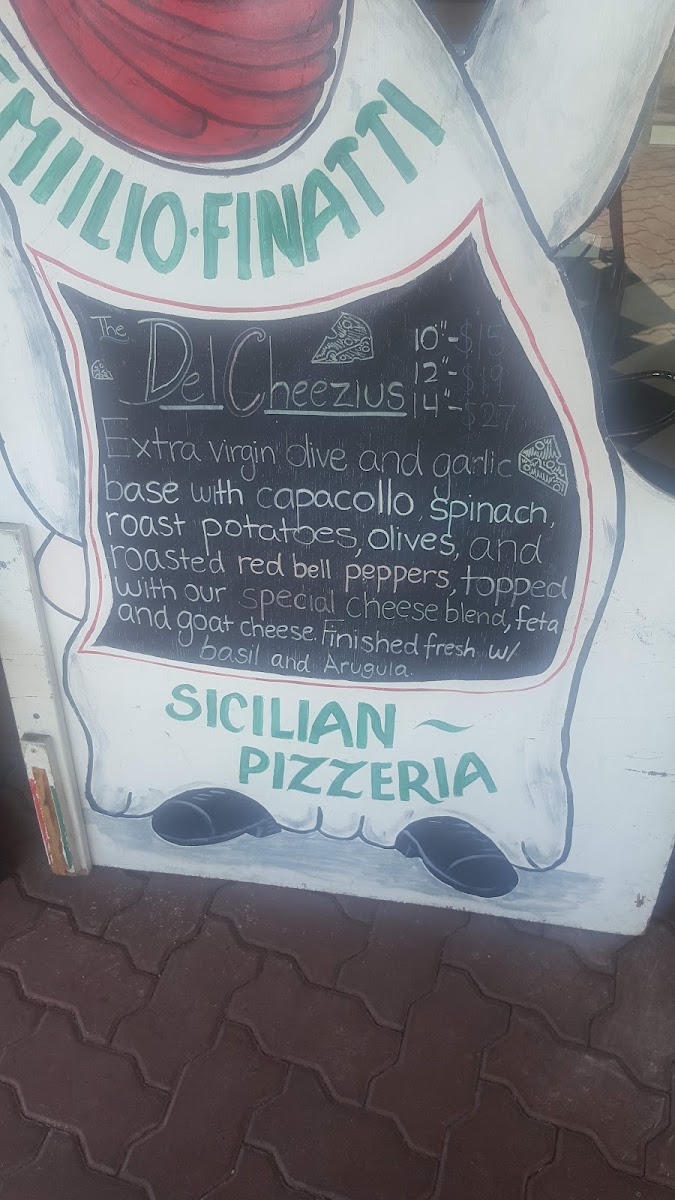 EMIILIO·FINATTI
The Del Cheezius
10"-$15
12"-$19
14"-$27
Extra virgin olive and garlic
base with capacollo, spinach,
roast potatoes, olives, and
roasted red bell peppers, topped
with our special cheese blend, feta
and goat cheese. Finished fresh w/
basil and Arugula.
SICILIAN ~
PIZZERIA